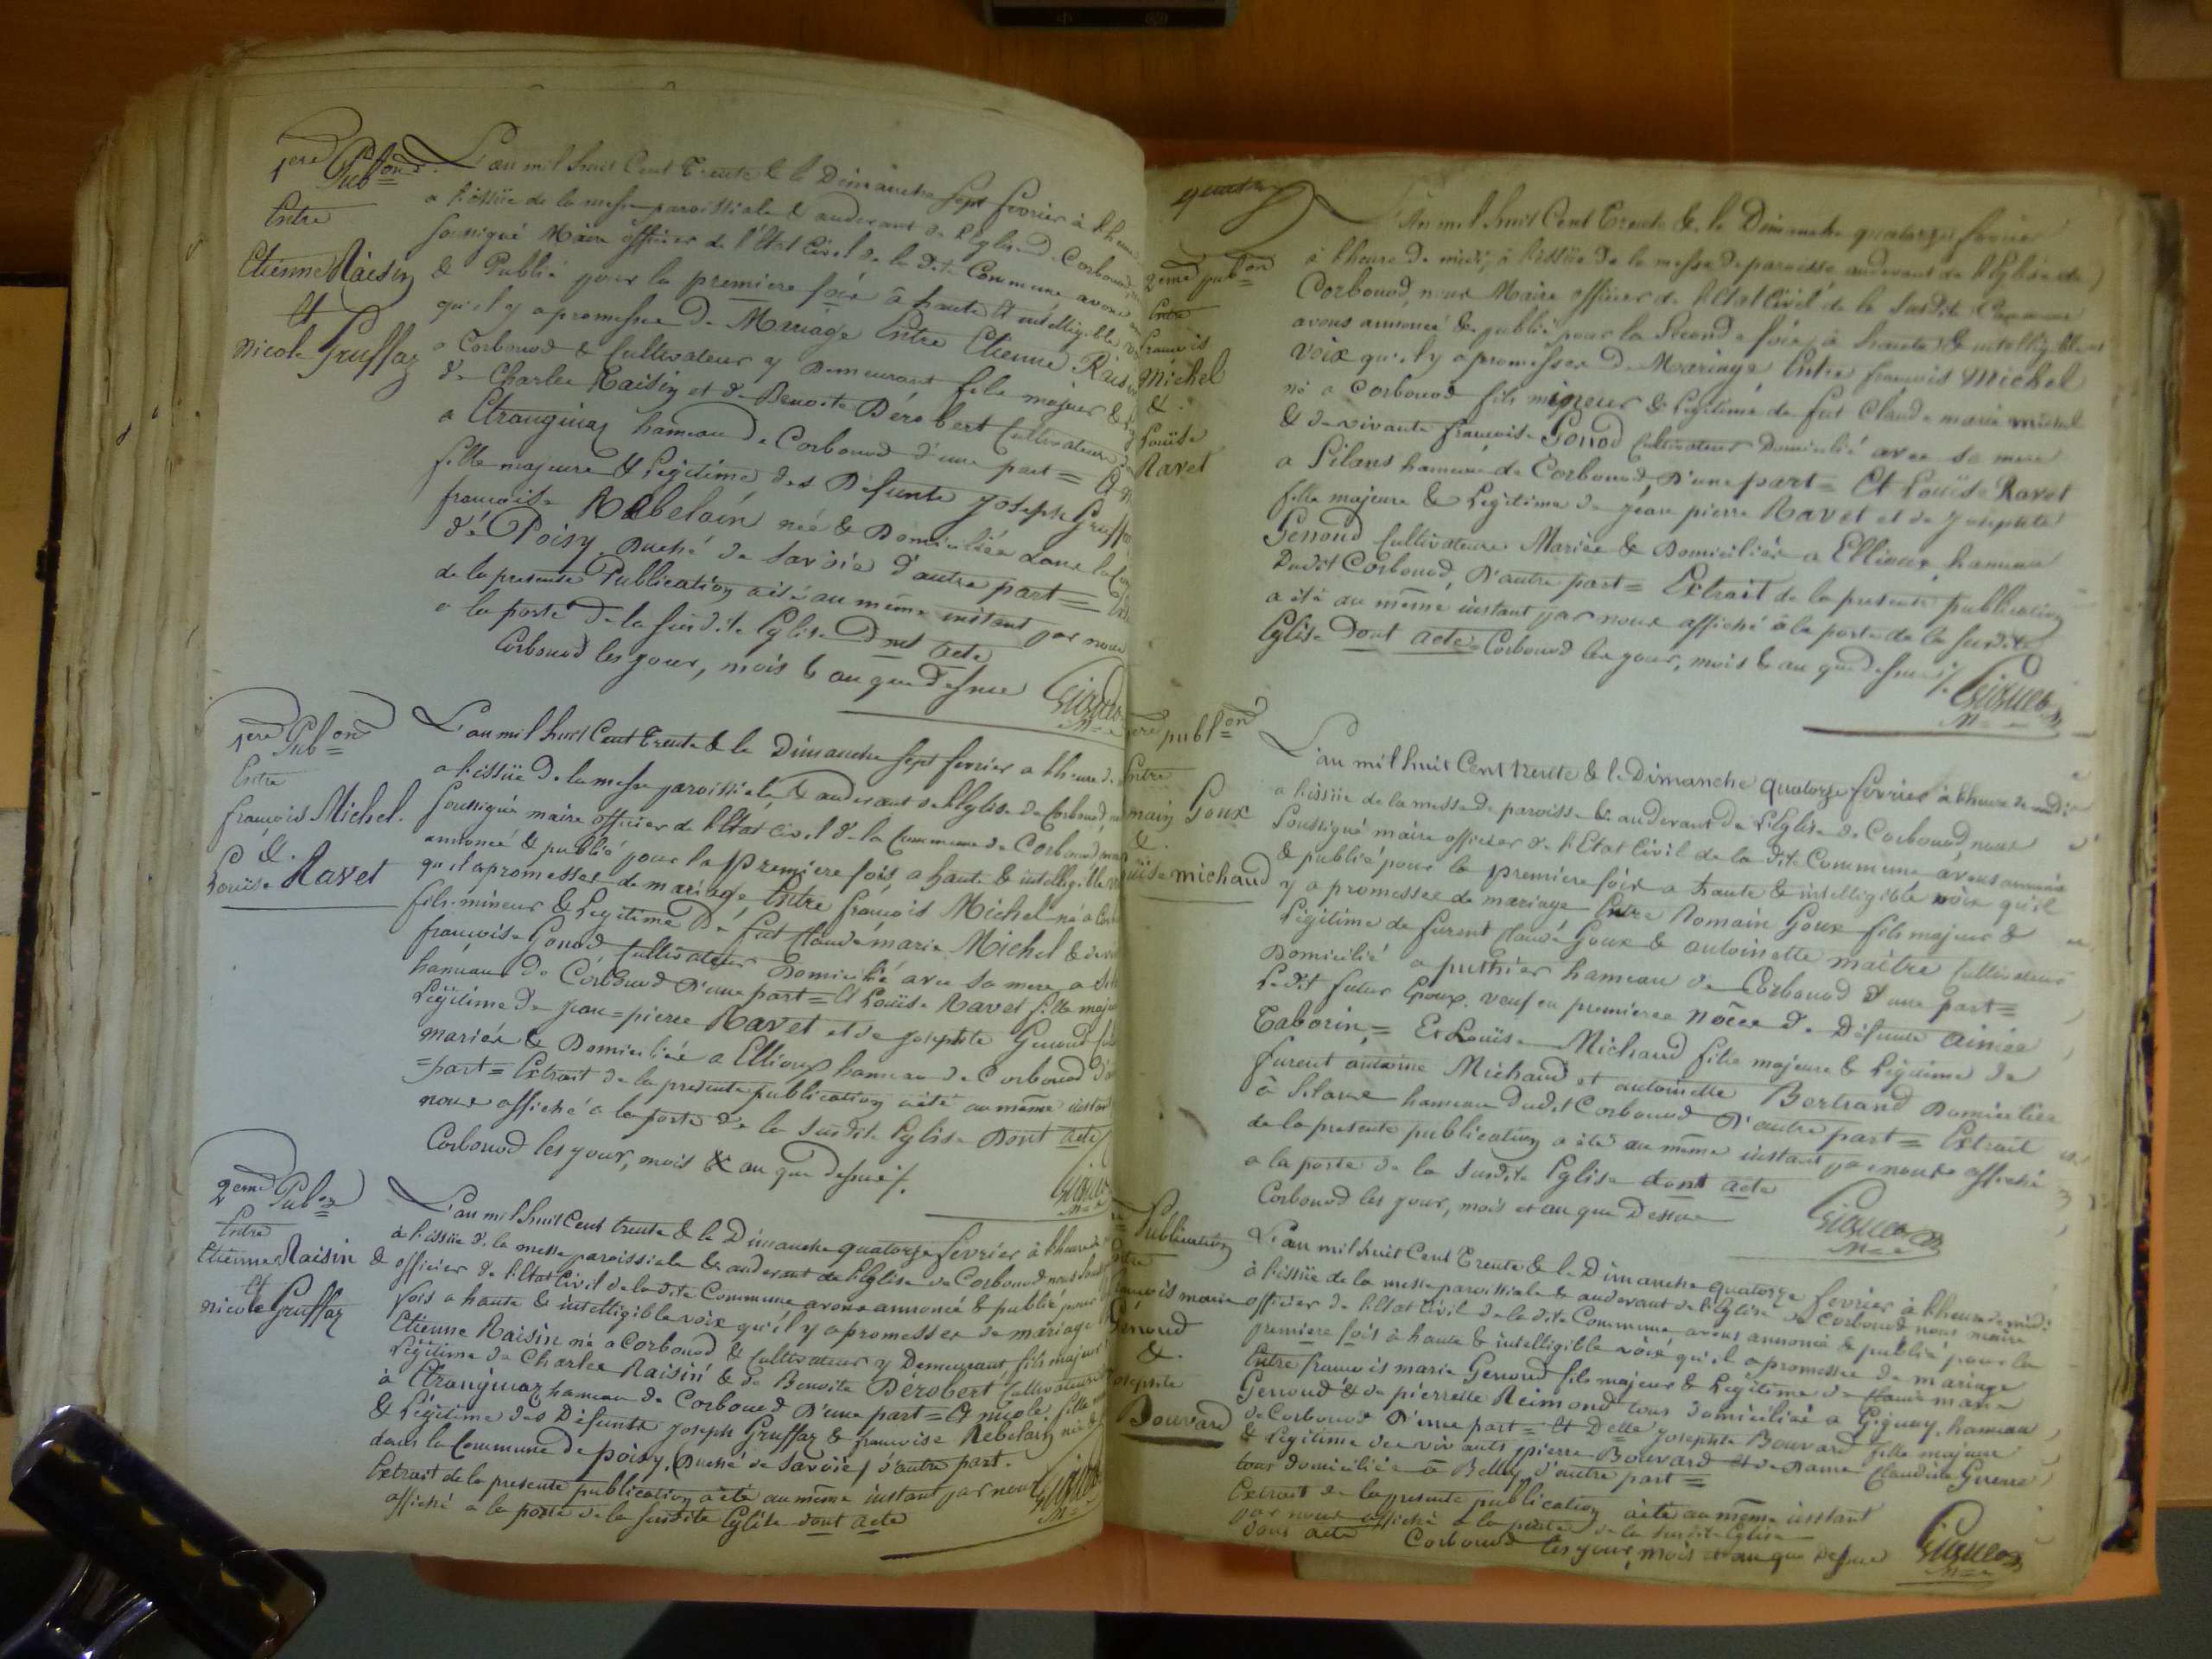 1ere Pubon
Entre
Etienne Raisin
Et
Nicole Gruffaz
L'an mil huit Cent Trente & le Dimanche sept fevrier à l'heure
a l'issüe de la messe paroissiale & audevant de l'Eglise de Corbonod,
soussigné Maire officier de l'Etat Civil de la dite Commune avons
& Publié pour la premiere fois à haute et intelligible
qu'il y a promesse de Mariage Entre Etienne Raisin
a Corbonod & Cultivateur y Demeurant fils majeur &
de Charles Raisin et de Benoite Dérobert Cultivateurs
a Etranginaz hameau de Corbonod d'une part = Et
fille majeure & Légitime des Défunts Joseph Gruffaz
françoise Rebelain née & Domiciliée dans la
de Poisy, Duché de Savoie d'autre part =
de la presente Publication a été au même instant par nous
a la porte de la susdite Eglise Dont acte
Corbonod les jour, mois & an que dessus
1ere Pubon
Entre
françois Michel.
&.
Loüise Ravet
L'an mil huit Cent Trente & le Dimanche sept fevrier a l'heure de
a l'issüe de la messe paroissiale & audevant de l'Eglise de Corbonod,
soussigné maire officier de l'Etat Civil de la Commune de Corbonod
annoncé & publié pour la premiere fois a haute & intelligible
qu'il a promesses de mariage Entre françois Michel né a
fils mineur & Légitime De feu Claude marie Michel & de
françoise Gonod Cultivateur Domicilié avec sa mere a
hameau de Corbonod D'une part = Et Loüise Ravet fille
Légitime de Jean=pierre Ravet et de Josephte Genoud
mariés & Domiciliés a Ellioux hameau de Corbonod
=part = Extrait de la presente publication a été au même
nous affiché a la porte de la susdite Eglise Dont acte
Corbonod les jour, mois & an que dessus /.
2eme Pubon
Entre
Etienne Raisin
Et
Nicole Gruffaz
L'an mil huit Cent trente & le Dimanche quatorze fevrier à l'heure de
à l'issüe de la messe paroissiale & audevant de l'Eglise de Corbonod nous
& officier de l'Etat Civil de la dite Commune avons annoncé & publié pour
fois a haute & intelligible voix qu'il y a promesses de mariage
Etienne Raisin né a Corbonod & Cultivateur y Demeurant fils majeur
Légitime de Charles Raisin & de Benoite Dérobert Cultivateurs
à Etranginaz hameau de Corbonod D'une part = Et nicole, fille
& Légitime des Défunts Joseph Gruffaz & françoise Rebelain née &
dans la Commune de poisy, (Duché de Savoie) d'autre part.
Extrait de la presente publication a été au même instant par nous
affiché a la porte de la susdite Eglise dont acte
quatre
2eme pubon
Entre
françois
Michel
&.
Loüise
Ravet
L'An mil huit Cent Trente & le Dimanche quatorze fevrier
à l'heure de midi, a l'issüe de la messe de paroisse audevant de l'Eglise de
Corbonod, nous Maire officier de l'Etat Civil de la susdite Commune
avons annoncé & publié pour la seconde fois, à haute & intelligible
voix qu'il y a promesses de Mariage Entre françois Michel
né a Corbonod fils mineur & Légitime de fut Claude marie michel
& de vivante françoise Gonod Cultivateur Domicilié avec sa mere
a Silans hameau de Corbonod, D'une part = Et Loüise Ravet
fille majeure & Légitime de Jean pierre Ravet et de Josephte
Genoud Cultivateurs Mariés & Domiciliés a Ellioux, hameau
Dudit Corbonod, D'autre part = Extrait de la presente publication
a été au même instant par nous affiché à la porte de la susdite
Eglise dont acte = Corbonod les jour, mois & an que dessus /.
publon
Entre
Goux
&.
michaud
L'an mil huit Cent trente & le Dimanche quatorze fevrier à l'heure de midi
a l'issüe de la messe de paroisse & audevant de l'Eglise de Corbonod, nous
soussigné maire officier de l'Etat Civil de la dite Commune avons annoncé
& publié pour la premiere fois a haute & intelligible voix qu'il
y a promesses de mariage Entre Romain Goux fils majeur &
Légitime de furent Claude Goux & antoinette maître Cultivateur
Domicilié a puthier hameau de Corbonod d'une part =
Ledit futur Epoux veuf en premieres nôces de Défunte Aimée
Taborin, = Et Loüise Michaud fille majeure & Légitime de
furent antoine Michaud et antoinette Bertrand Domiciliée
à Silans hameau dudit Corbonod D'autre part = Extrait
de la presente publication a été au même instant par nous affiché
a la porte de la susdite Eglise dont acte
Corbonod les jour, mois et an que Dessus
Publication
Entre
françois marie
Genoud
&.
Josephte
Bouvard
L'an mil huit Cent Trente & le Dimanche quatorze fevrier à l'heure de midi
à l'issüe de la messe paroissiale & audevant de l'Eglise de Corbonod nous maire
officier de l'Etat Civil de la dite Commune avons annoncé & publié pour la
premiere fois à haute & intelligible voix qu'il a promesses de mariage
Entre françois marie Genoud fils majeur & Légitime de Claude marie
Genoud & de pierrette Reimond tous domiciliés a Gignay, hameau
de Corbonod D'une part = Et Delle Josephte Bouvard fille majeure
& Légitime des vivants pierre Bouvard et de Dame Claudine Guerre
tous domiciliés à Belley d'autre part =
Extrait de la presente publication a été au même instant
par nous affiché a la porte de la susdite Eglise
dont acte Corbonod les jour, mois et an que Dessus